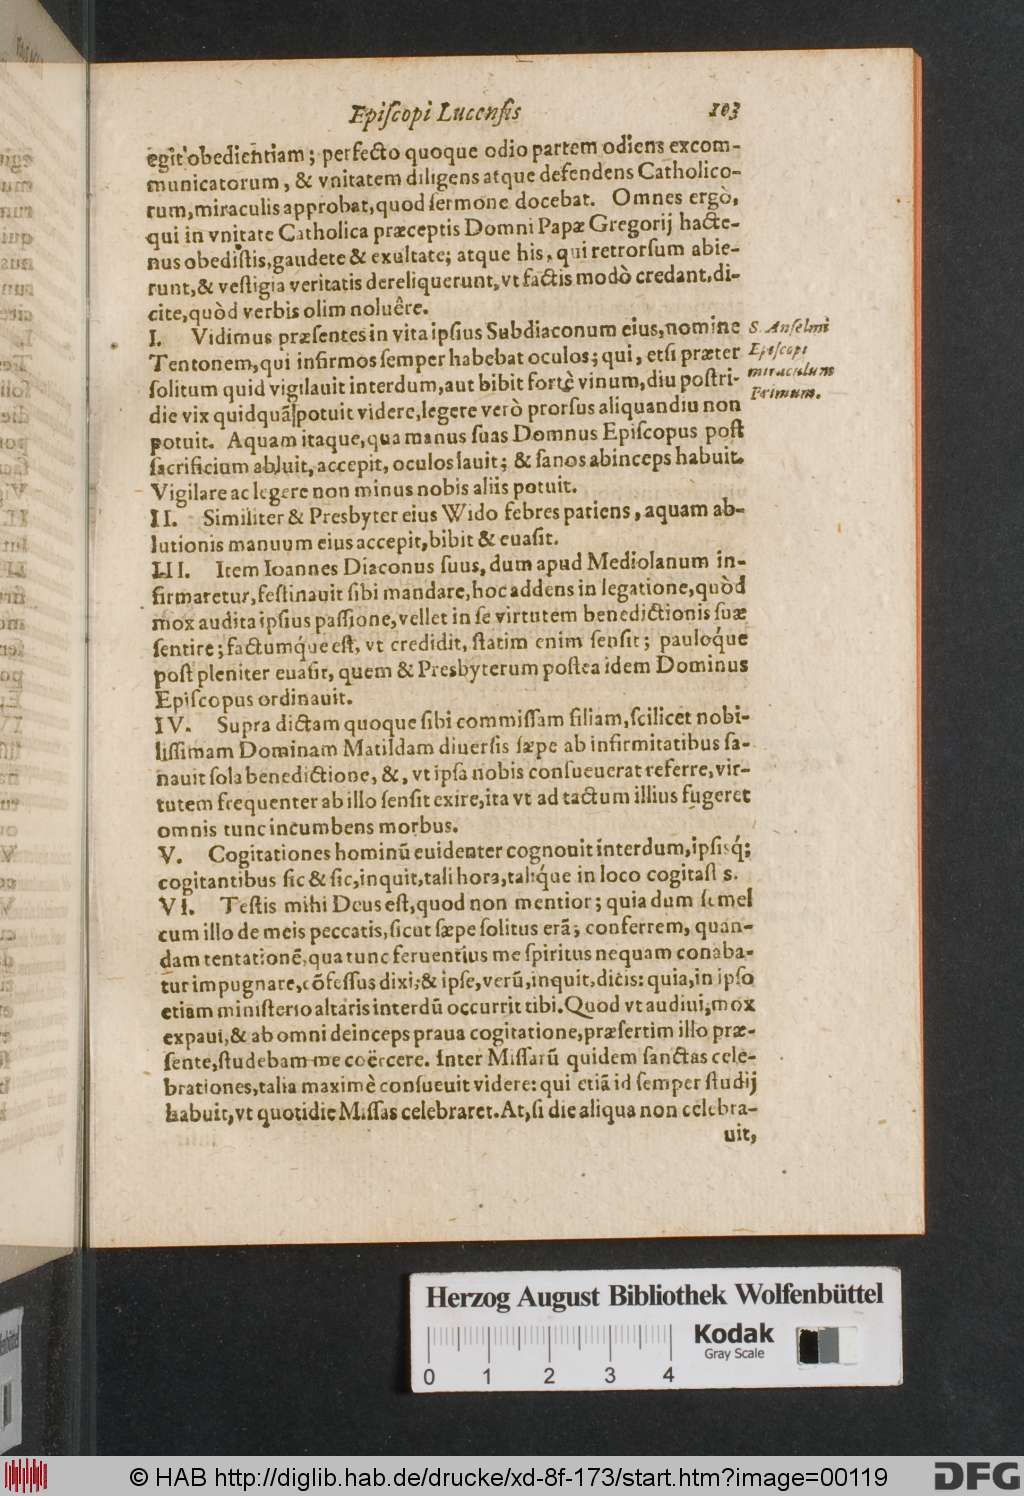 Epiſcopi Lucenſis 103
egit obedientiam; perfecto quoque odio partem odiens excom-
municatorum, & vnitatem diligens atque defendens Catholico-
rum, miraculis approbat, quod ſermone docebat. Omnes ergò,
qui in vnitate Catholica præceptis Domni Papæ Gregorij hacte-
nus obediſtis, gaudete & exultate; atque his, qui retrorſum abie-
runt, & veſtigia veritatis dereliquerunt, vt factis modò credant, di-
cite, quòd verbis olim noluêre.
I. Vidimus præſentes in vita ipſius Subdiaconum eius, nomine
Tentonem, qui infirmos ſemper habebat oculos; qui, etſi præter
ſolitum quid vigilauit interdum, aut bibit fortè vinum, diu poſtri-
die vix quidquã potuit videre, legere verò prorſus aliquandiu non
potuit. Aquam itaque, qua manus ſuas Domnus Epiſcopus poſt
ſacrificium abluit, accepit, oculos lauit; & ſanos abinceps habuit.
Vigilare ac legere non minus nobis aliis potuit.
S. Anſelmi
Epiſcopi
miraculum
Primum.
II. Similiter & Presbyter eius Wido febres patiens, aquam ab-
lutionis manuum eius accepit, bibit & euaſit.
III. Item Ioannes Diaconus ſuus, dum apud Mediolanum in-
firmaretur, feſtinauit ſibi mandare, hoc addens in legatione, quòd
mox audita ipſius paſſione, vellet in ſe virtutem benedictionis ſuæ
ſentire; factumq́ue eſt, vt credidit, ſtatim enim ſenſit; pauloq́ue
poſt pleniter euaſit, quem & Presbyterum poſtea idem Dominus
Epiſcopus ordinauit.
IV. Supra dictam quoque ſibi commiſſam filiam, ſcilicet nobi-
liſſimam Dominam Matildam diuerſis ſæpe ab infirmitatibus ſa-
nauit ſola benedictione, &, vt ipſa nobis conſueuerat referre, vir-
tutem frequenter ab illo ſenſit exire, ita vt ad tactum illius fugeret
omnis tunc incumbens morbus.
V. Cogitationes hominũ euidenter cognouit interdum, ipſisq́;
cogitantibus ſic & ſic, inquit, tali hora, taliq́ue in loco cogitaſtis.
VI. Teſtis mihi Deus eſt, quod non mentior; quia dum ſemel
cum illo de meis peccatis, ſicut ſæpe ſolitus erã, conferrem, quan-
dam tentationẽ, qua tunc feruentius me ſpiritus nequam conaba-
tur impugnare, cõfeſſus dixi; & ipſe, verũ, inquit, dicis: quia, in ipſo
etiam miniſterio altaris interdũ occurrit tibi. Quod vt audiui, mox
expaui, & ab omni deinceps praua cogitatione, præſertim illo præ-
ſente, ſtudebam me coërcere. Inter Miſſarũ quidem ſanctas cele-
brationes, talia maximè conſueuit videre: qui etiã id ſemper ſtudij
habuit, vt quotidie Miſſas celebraret. At, ſi die aliqua non celebra-
uit,
Herzog August Bibliothek Wolfenbüttel
0 1 2 3 4
Kodak
Gray Scale
© HAB http://diglib.hab.de/drucke/xd-8f-173/start.htm?image=00119
DFG